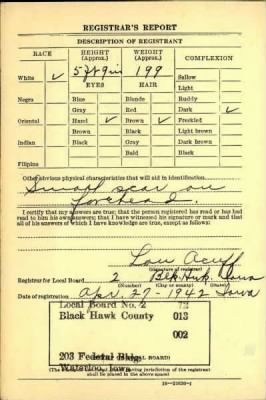 REGISTRAR'S REPORT
DESCRIPTION OF REGISTRANT
RACE HEIGHT (Approx.) WEIGHT (Approx.) COMPLEXION
White ✓ 5 ft 9 in 199 Sallow
EYES HAIR Light
Negro Blue Blonde Ruddy
Gray Red Dark ✓
Oriental Hazel ✓ Brown ✓ Freckled
Brown Black Light brown
Indian Black Gray Dark brown
Bald Black
Filipino
Other obvious physical characteristics that will aid in identification
Small scar on
forehead.
I certify that my answers are true; that the person registered has read or has had
read to him his own answers; that I have witnessed his signature or mark and that
all of his answers of which I have knowledge are true, except as follows:
Lou Acuff
(Signature of registrar)
Registrar for Local Board 2 Blk Hwk. Iowa
(Number) (City or county) (State)
Date of registration Apr. 27 - 1942 Iowa
Local Board No. 2 72
Black Hawk County 013
002
203 Federal Bldg.
Waterloo, Iowa
LOCAL BOARD)
having jurisdiction of the registrant
shall be placed in the above space)